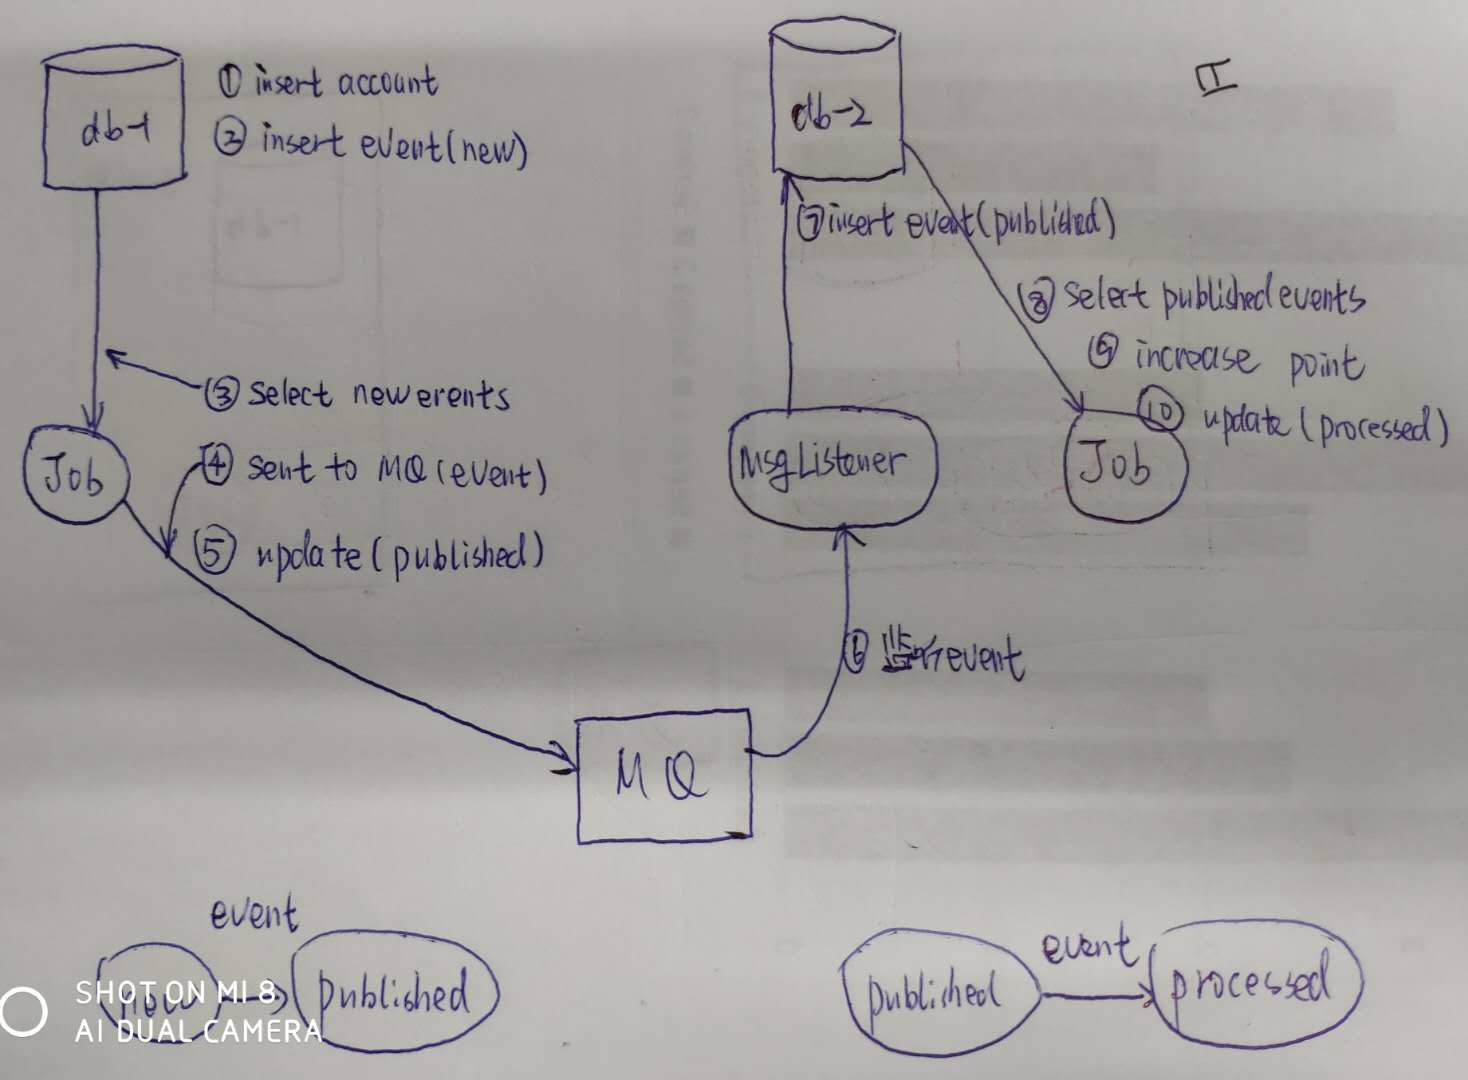 db-1
① insert account
② insert event(new)
③ select new erents
④ sent to MQ(event)
⑤ update(published)
Job
MQ
⑥ 监听event
MsgListener
⑦ insert event(published)
db-2
II
⑧ select published events
⑨ increase point
⑩ update(processed)
Job
event
new
published
event
published
processed
SHOT ON MI 8
AI DUAL CAMERA